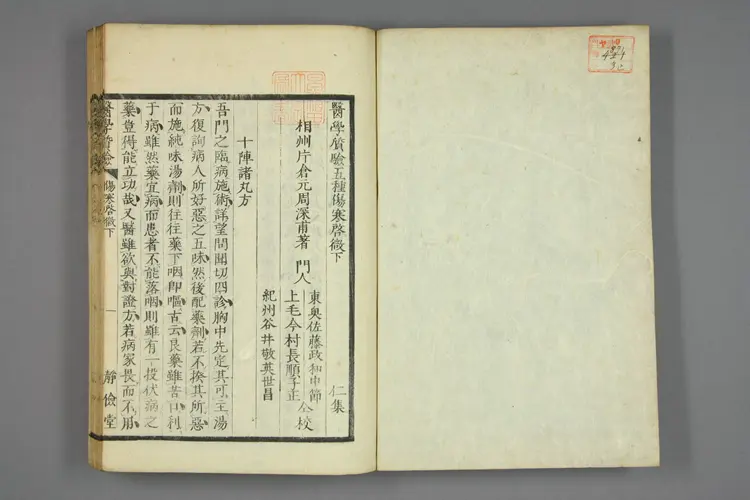 醫學質驗五種傷寒啓微下
仁集
相州片倉元周深甫著
門人
東奥佐藤政和中節
上毛今村長順子正
仝校
紀州谷井敬英世昌
十陣諸丸方
吾門之臨病施術詳望問聞切四診胸中先定其可主湯
方復詢病人所好惡之五味然後配藥劑若不揆其所惡
而施純味湯劑則往往藥下咽即嘔古云良藥雖苦口利
于病雖然藥宜病而患者不能落咽則雖有一投伏病之
藥豈得能立功哉又醫雖欲與對證方若病家畏而不服
傷寒啓微下
一
靜儉堂